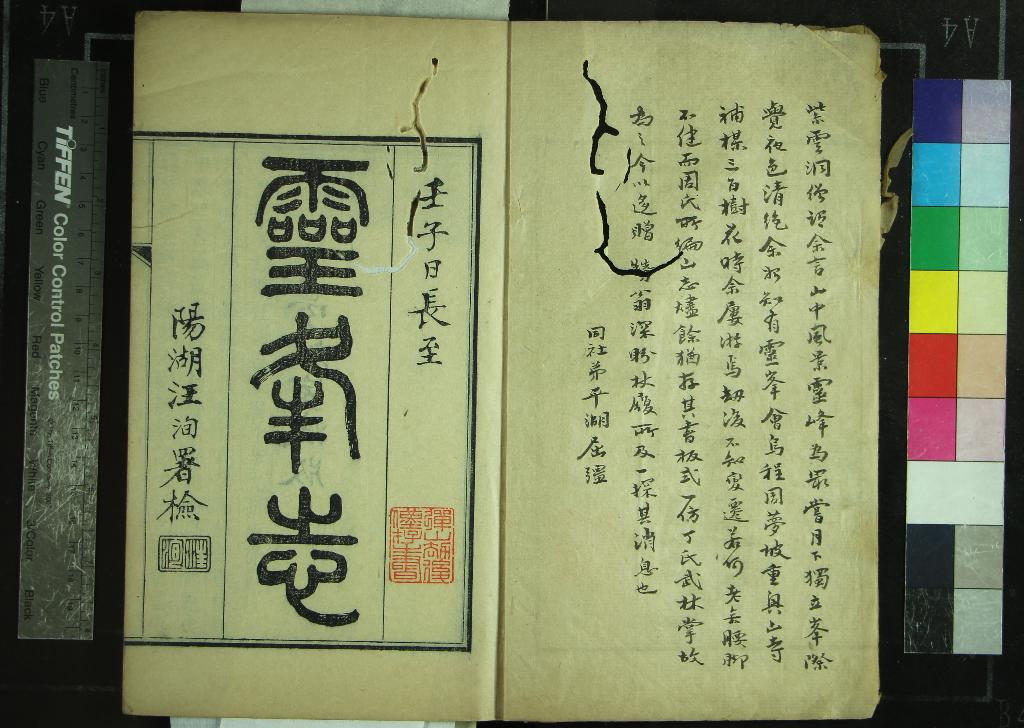 紫雲洞僧語余言山中風景靈峰為最當月下獨立峯際
覺夜色清絕余始知有靈峯會烏程周夢坡重興山寺
補楳三百樹花時余屢游焉劫後不知變遷若何老去腰脚
不健而周氏所編山志燼餘猶存其書板式一仿丁氏武林掌故
為之今以迻贈 翁深盼杖履所及一探其消息也
同社弟平湖屈彊
壬子日長至
靈峯志
陽湖汪洵署檢
汪洵
彈山
書
TIFFEN Color Control Patches
Centimetres
Blue
Cyan
Green
Yellow
Red
Magenta
White
3/Color
Black
A4
A4